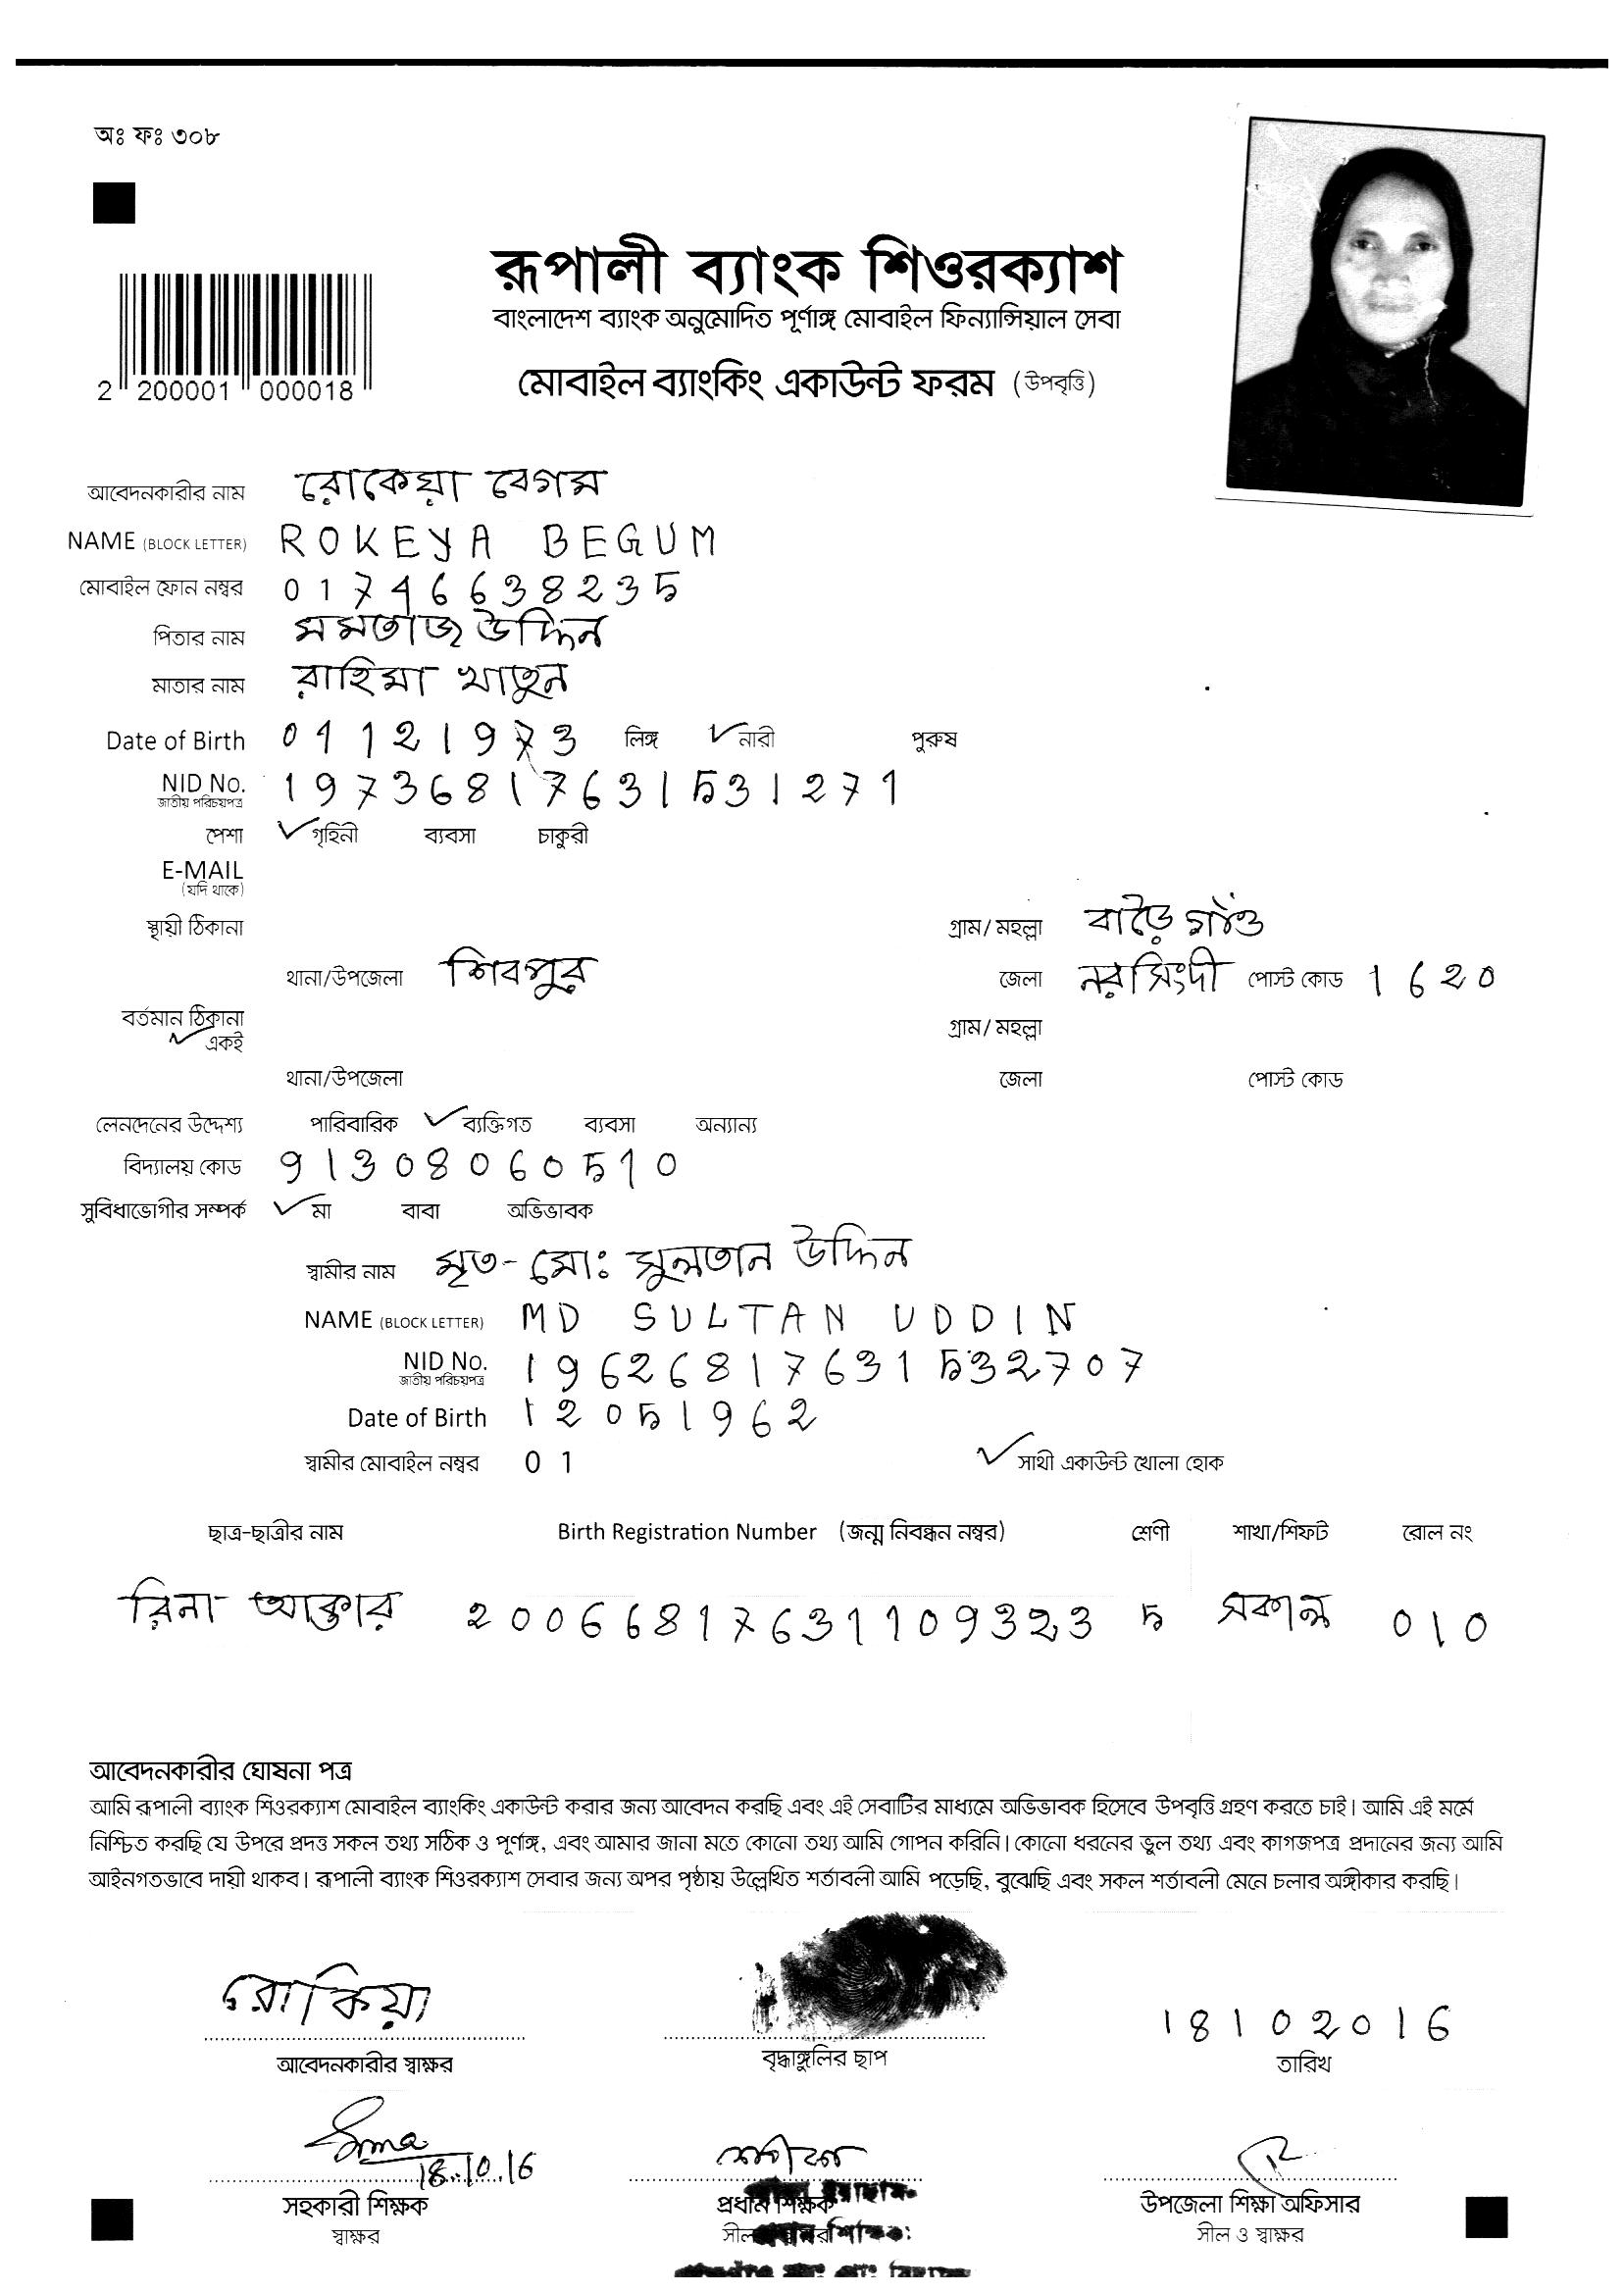 অঃ ফঃ ৩০৮
রূপালী ব্যাংক শিওরক্যাশ
বাংলাদেশ ব্যাংক অনুমোদিত পূর্ণাঙ্গ মোবাইল ফিন্যান্সিয়াল সেবা
2 200001 000018
মোবাইল ব্যাংকিং একাউন্ট ফরম (উপবৃত্তি)
আবেদনকারীর নাম রোকেয়া বেগম
NAME (BLOCK LETTER) ROKEYA BEGUM
মোবাইল ফোন নম্বর 01746638235
পিতার নাম মমতাজ উদ্দিন
মাতার নাম রাহিমা খাতুন
Date of Birth 01121973 লিঙ্গ ✓ নারী পুরুষ
NID No. 19736817631531271
জাতীয় পরিচয়পত্র
পেশা ✓ গৃহিনী ব্যবসা চাকুরী
E-MAIL
(যদি থাকে)
স্থায়ী ঠিকানা গ্রাম/ মহল্লা বাড়ৈ গাঁও
থানা/উপজেলা শিবপুর জেলা নরসিংদী পোস্ট কোড 1620
বর্তমান ঠিকানা গ্রাম/ মহল্লা
✓ একই
থানা/উপজেলা জেলা পোস্ট কোড
লেনদেনের উদ্দেশ্য পারিবারিক ✓ ব্যক্তিগত ব্যবসা অন্যান্য
বিদ্যালয় কোড 91308060510
সুবিধাভোগীর সম্পর্ক ✓ মা বাবা অভিভাবক
স্বামীর নাম মৃত- মোঃ সুলতান উদ্দিন
NAME (BLOCK LETTER) MD SULTAN UDDIN
NID No. 19626817631532707
জাতীয় পরিচয়পত্র
Date of Birth 12051962
স্বামীর মোবাইল নম্বর 01 ✓ সাথী একাউন্ট খোলা হোক
ছাত্র-ছাত্রীর নাম Birth Registration Number (জন্ম নিবন্ধন নম্বর) শ্রেণী শাখা/শিফট রোল নং
রিনা আক্তার 20066817631109323 5 সকাল 010
আবেদনকারীর ঘোষনা পত্র
আমি রূপালী ব্যাংক শিওরক্যাশ মোবাইল ব্যাংকিং একাউন্ট করার জন্য আবেদন করছি এবং এই সেবাটির মাধ্যমে অভিভাবক হিসেবে উপবৃত্তি গ্রহণ করতে চাই। আমি এই মর্মে
নিশ্চিত করছি যে উপরে প্রদত্ত সকল তথ্য সঠিক ও পূর্ণাঙ্গ, এবং আমার জানা মতে কোনো তথ্য আমি গোপন করিনি। কোনো ধরনের ভুল তথ্য এবং কাগজপত্র প্রদানের জন্য আমি
আইনগতভাবে দায়ী থাকব। রূপালী ব্যাংক শিওরক্যাশ সেবার জন্য অপর পৃষ্ঠায় উল্লেখিত শর্তাবলী আমি পড়েছি, বুঝেছি এবং সকল শর্তাবলী মেনে চলার অঙ্গীকার করছি।
রোকিয়া 18102016
আবেদনকারীর স্বাক্ষর বৃদ্ধাঙ্গুলির ছাপ তারিখ
18.10.16
সহকারী শিক্ষক প্রধান শিক্ষক উপজেলা শিক্ষা অফিসার
স্বাক্ষর সীল ও স্বাক্ষর সীল ও স্বাক্ষর